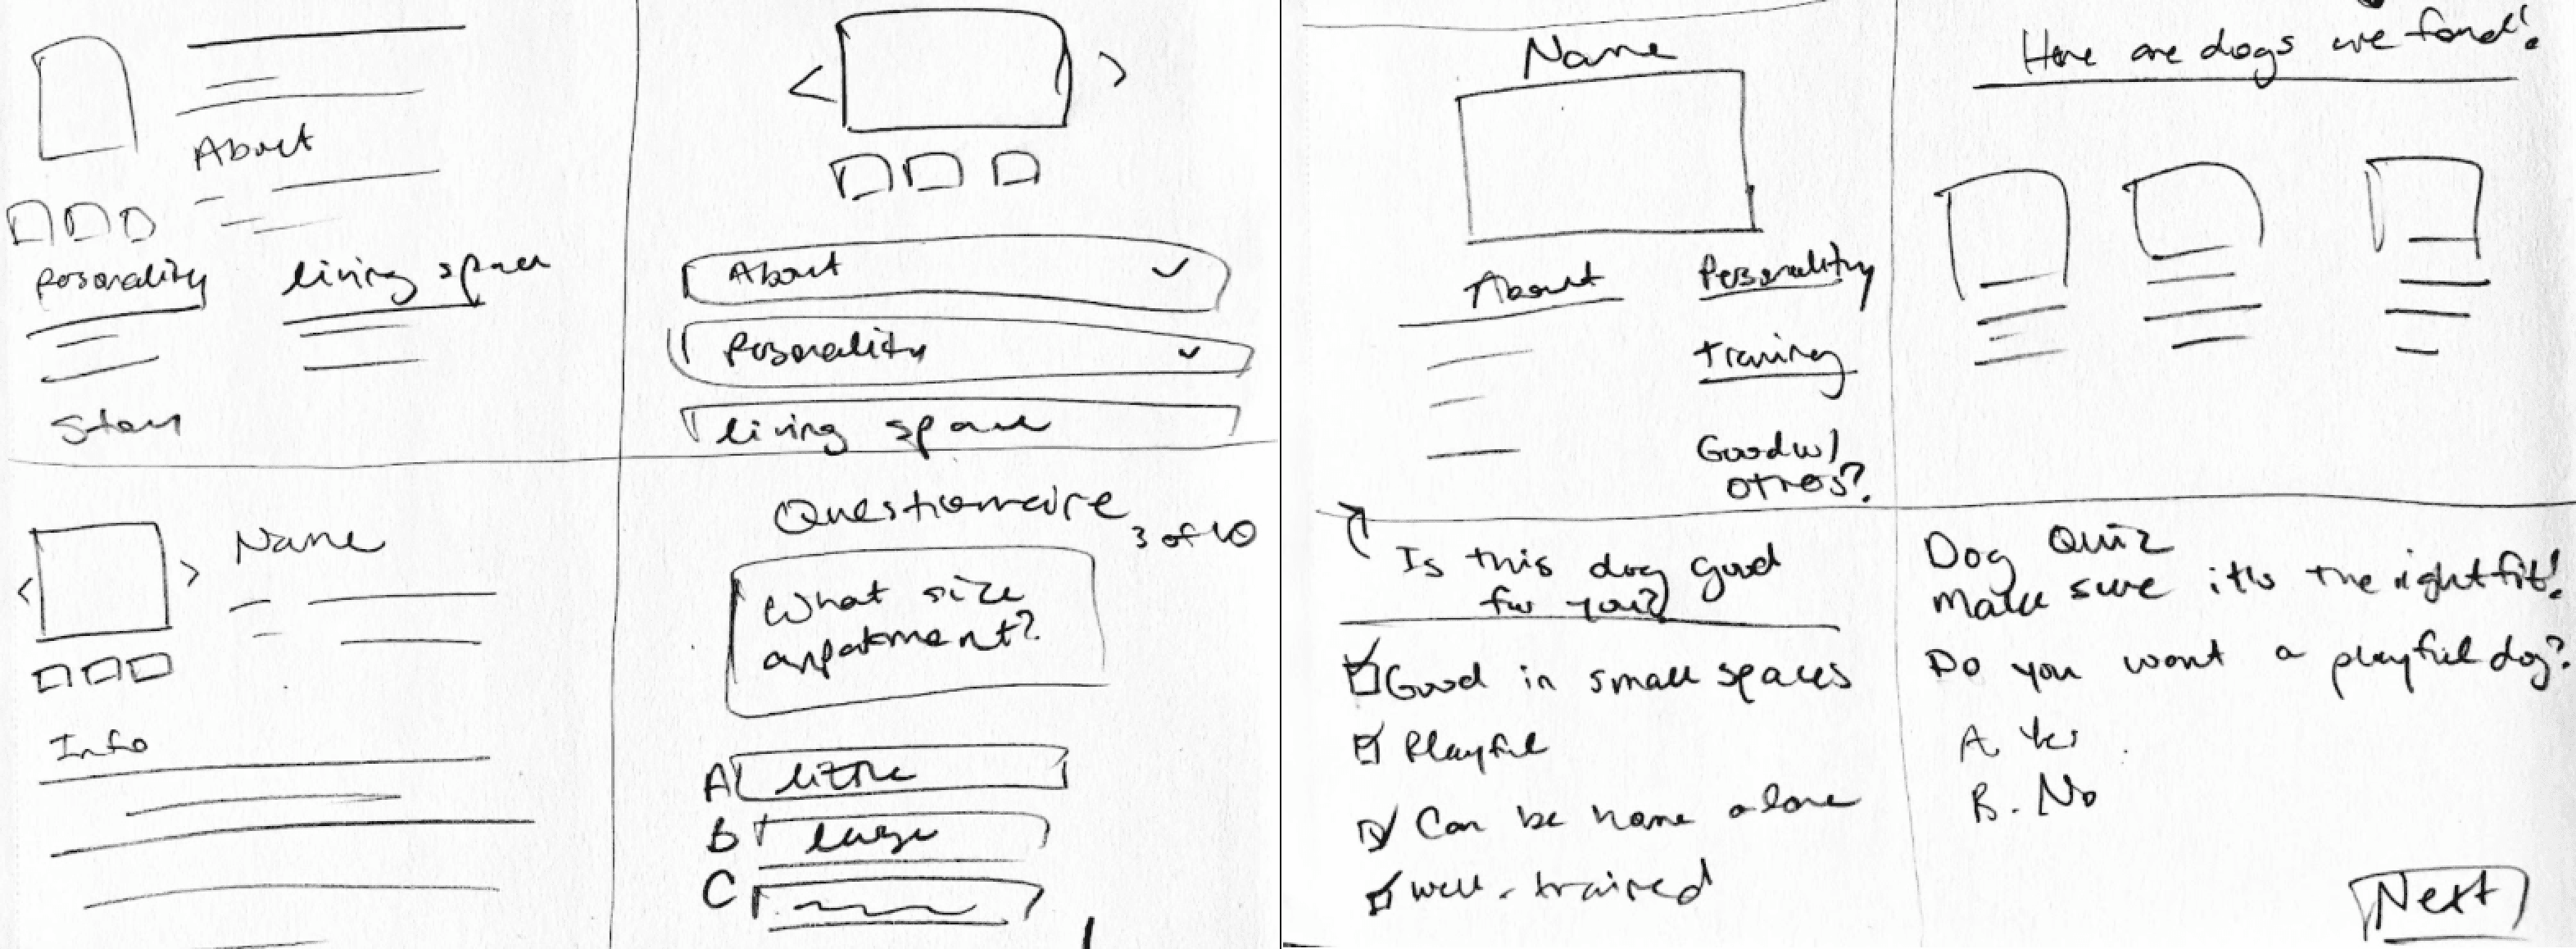 About
Personality
living space
Story
<
>
About
Personality
living space
<
>
Name
Info
Questionnaire
3 of 10
What size
apartment?
A little
B large
C
Name
About
Personality
Training
Good w/
others?
Here are dogs we found!
Is this dog good
for you?
Good in small spaces
Playful
Can be home alone
Well-trained
Dog Quiz
Make sure it's the right fit!
Do you want a playful dog?
A. Yes
B. No
Next